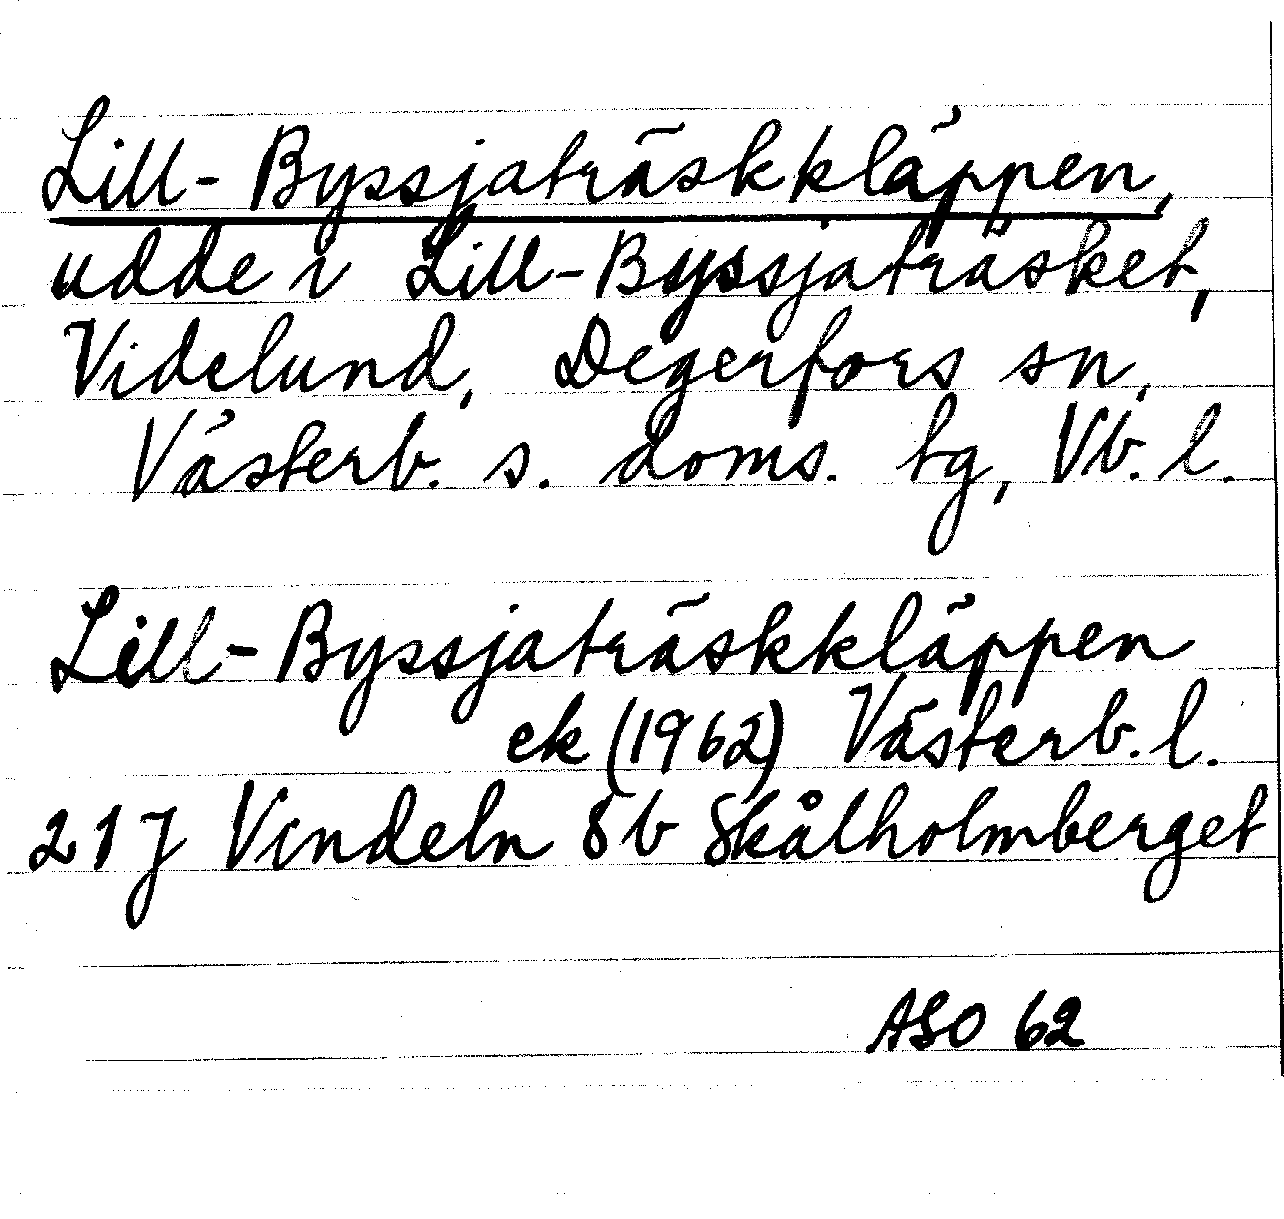 Lill-Byssjaträskkläppen,
udde i Lill-Byssjaträsket,
Videlund, Degerfors sn,
Västerb. s. doms. tg, Vb. l.
Lill-Byssjaträskkläppen
ek (1962) Västerb. l.
21J Vindeln 8b Skålholmberget
ASO 62